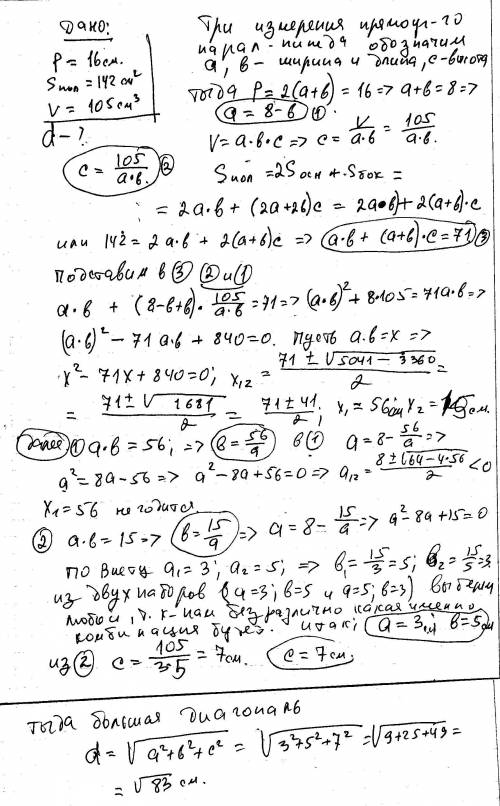 Дано:
P = 16 см.
Sпол = 142 см²
V = 105 см³
d - ?
c = 105/a·b. ②
Три измерения прямоуг-го
парал-пипеда обозначим
a, в - ширина и длина, с - высота
тогда P = 2(a+в) = 16 => a+в = 8 =>
a = 8-в ①
V = a·в·c => c = V/a·в = 105/a·в.
Sпол = 2Sосн + Sбок =
= 2a·в + (2a+2в)c = 2a·в + 2(a+в)·c
или 142 = 2a·в + 2(a+в)c => a·в + (a+в)·c = 71 ③
подставим в ③ ② и ①
a·в + (8-в+в)·105/a·в = 71 => (a·в)² + 8·105 = 71a·в =>
(a·в)² - 71a·в + 840 = 0. Пусть a·в = x =>
x² - 71x + 840 = 0; x₁,₂ = 71 ± √5041 - 3360 / 2 =
= 71 ± √1681 / 2 = 71 ± 41 / 2; x₁ = 56 x₂ = 15 см.
① a·в = 56; => в = 56/a в ① a = 8 - 56/a =>
a² = 8a - 56 => a² - 8a + 56 = 0 => a₁,₂ = 8 ± √64 - 4·56 / 2 < 0
x₁ = 56 не годится.
② a·в = 15 => в = 15/a => a = 8 - 15/a => a² - 8a + 15 = 0
по Виету a₁ = 3; a₂ = 5; => в₁ = 15/3 = 5; в₂ = 15/5 = 3
из двух наборов (a=3; в=5 и a=5; в=3) выберем
любой, т.к. нам безразлично какая именно
комбинация будет. итак; a = 3см в = 5см
из ② c = 105/3·5 = 7 см. c = 7 см.
тогда большая диагональ
d = √a²+в²+c² = √3²+5²+7² = √9+25+49 =
= √83 см.